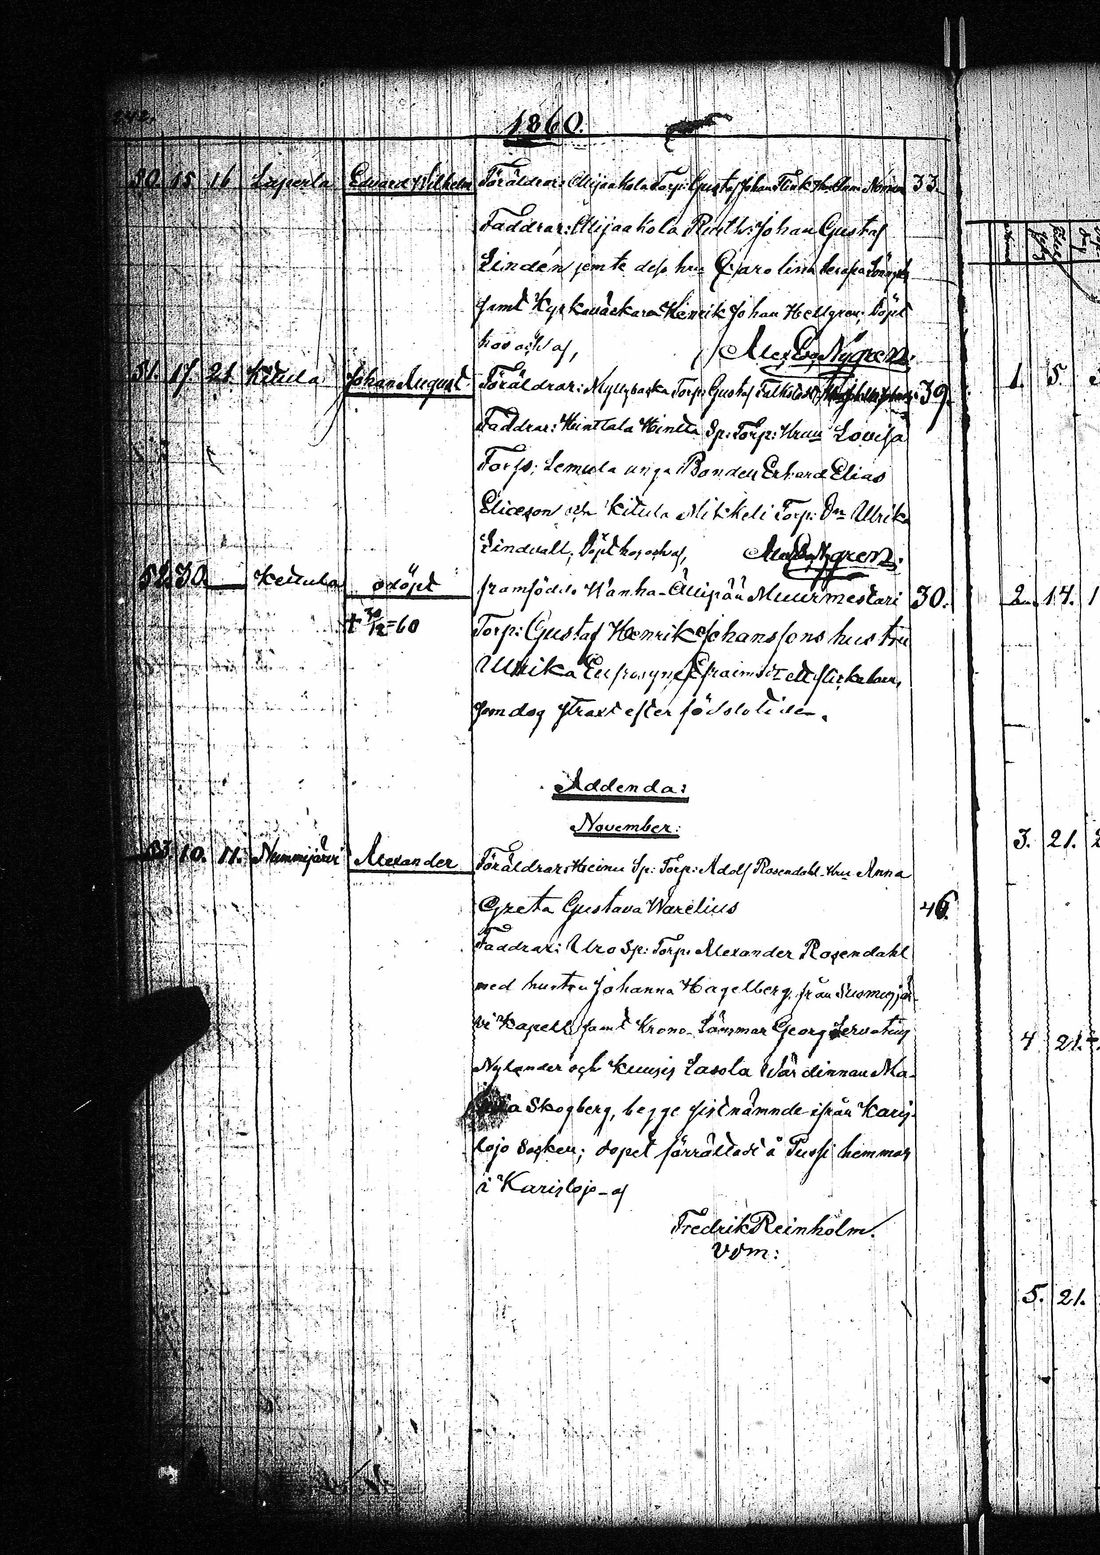 242.
1860.
50. 15 16 Laperla Edvard Wilhelm Föräldrar: Ollijaakola Torp: Gustaf Johan 33.
Faddrar: Ollijaakola Rusth: Johan Gustaf
Lindén jemte dess hru Carolina
samt Kyrkoväktaren Henrik Johan Hellgren; Döpt
hos och af,
Alex. Nygren.
51. 17. 21. Kitula Johan August Föräldrar: Myllybacka Torp: Gustaf 39.
Faddrar: Hinttala Hintta Sp: Torp: Hrun Lovisa
Torfs; Lemula unga Bonden Erhard Elias
Elicson och Kitula Mikkeli Torp: Dn Ulrika
Lindvall; Döpt hos och af, Alex. Nygren.
52. 30. — Kettula odöpt framfödde Wanha-Ällipää Muurmestari 30.
† 30/12=60 Torp: Gustaf Henrik Johanssons hustru
Ulrika Eufrosyne Efraimsd: ett flickebarn,
som dog straxt efter födslotiden.
Addenda:
November:
53. 10. 11. Nummijärvi Alexander Föräldrar: Heinu Sp: Torp: Adolf Rosendahl Hru Anna
Greta Gustava Warelius 46.
Faddrar: Uro Sp: Torp: Alexander Rosendahl
med hustru Johanna Hagelberg, från Nummijär-
vi Kapell, samt Krono-Länsman Georg Servatius
Nylander och Kuusis Lasola Värdinnan Ma-
ria Skogberg, begge sistnämnde ifrån Karis-
lojo Socken; dopet förrättadt å Pussi hemman
i Karislojo – af
Fredrik Reinholm.
vom:
1. 5. 3
2. 14. 1
3. 21. 2
4 21.
5. 21.